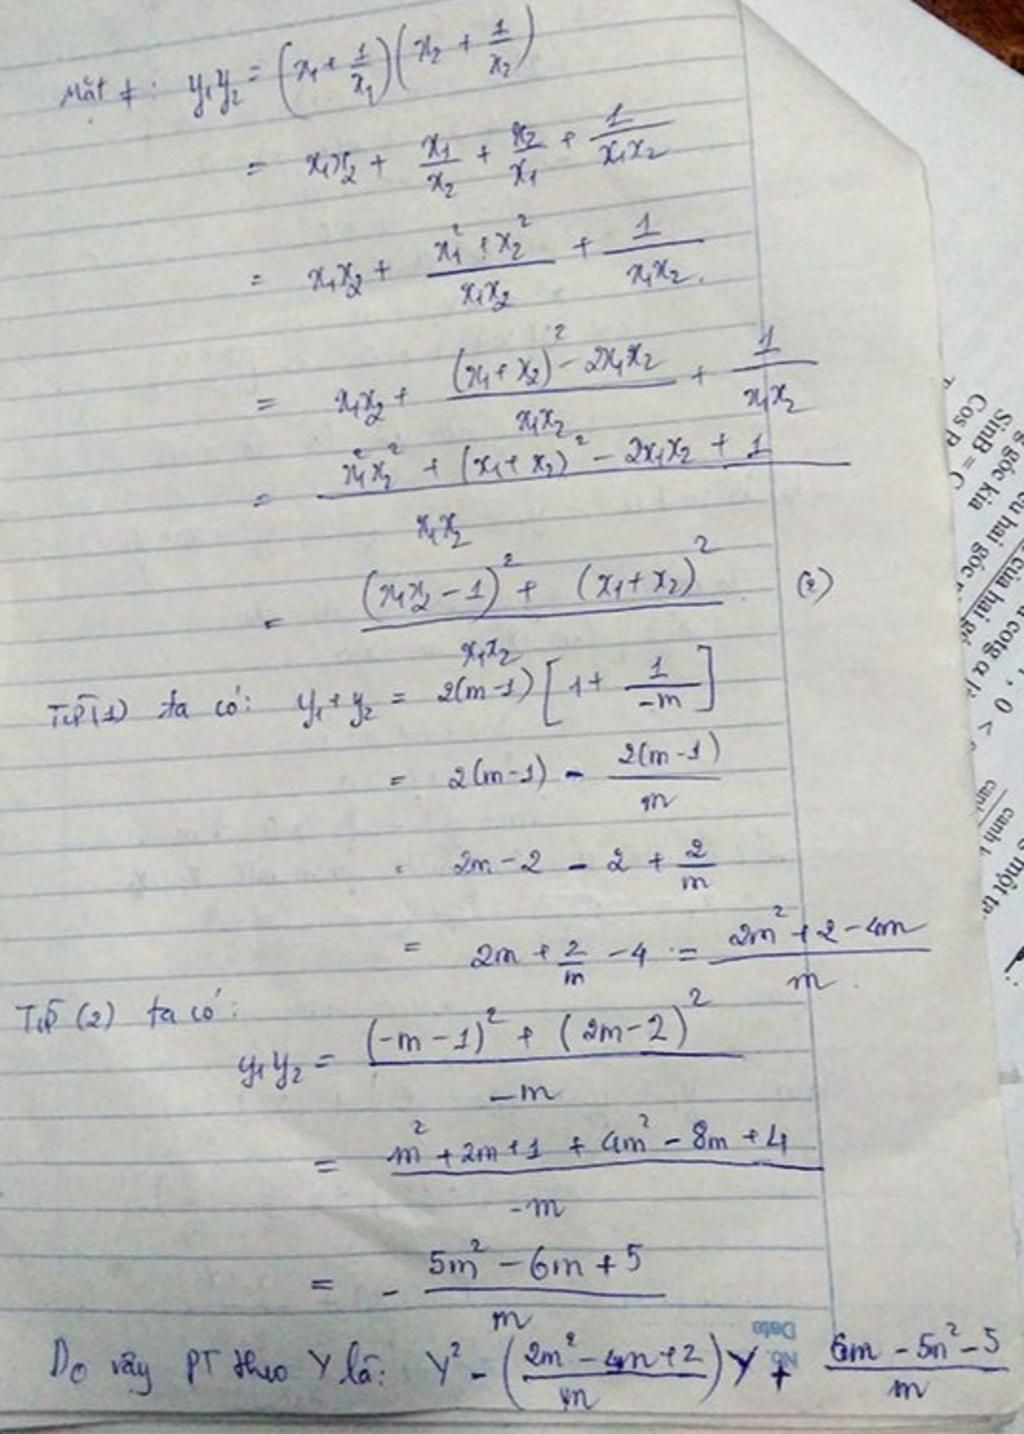 Mặt ≠ : y₁y₂ = (x₁ + 1/x₁)(x₂ + 1/x₂)
= x₁x₂ + x₁/x₂ + x₂/x₁ + 1/(x₁x₂)
= x₁x₂ + (x₁² + x₂²)/(x₁x₂) + 1/(x₁x₂).
= x₁x₂ + ((x₁ + x₂)² - 2x₁x₂)/(x₁x₂) + 1/(x₁x₂)
= (x₁²x₂² + (x₁ + x₂)² - 2x₁x₂ + 1)/(x₁x₂)
= ((x₁x₂ - 1)² + (x₁ + x₂)²)/(x₁x₂) (2)
Từ (1) ta có: y₁ + y₂ = 2(m-1)[1 + 1/(-m)]
= 2(m-1) - 2(m-1)/m
= 2m - 2 - 2 + 2/m
= 2m + 2/m - 4 = (2m² + 2 - 4m)/m.
Từ (2) ta có:
y₁y₂ = ((-m-1)² + (2m-2)²)/(-m)
= (m² + 2m + 1 + 4m² - 8m + 4)/(-m)
= - (5m² - 6m + 5)/m
Do vậy PT theo Y là: Y² - ((2m² - 4m + 2)/m)Y + (6m - 5m² - 5)/m
Date
No.
SinB = C
Cos B = C
góc kia
hai góc
của hai gó
cotg α
, 0 <
cạnh
một ta